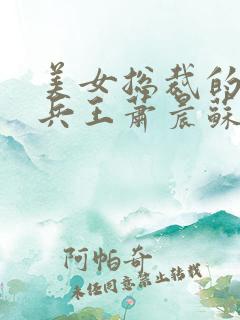 美女总裁的
兵王萧晨苏
阿帕奇
未经同意禁止转载